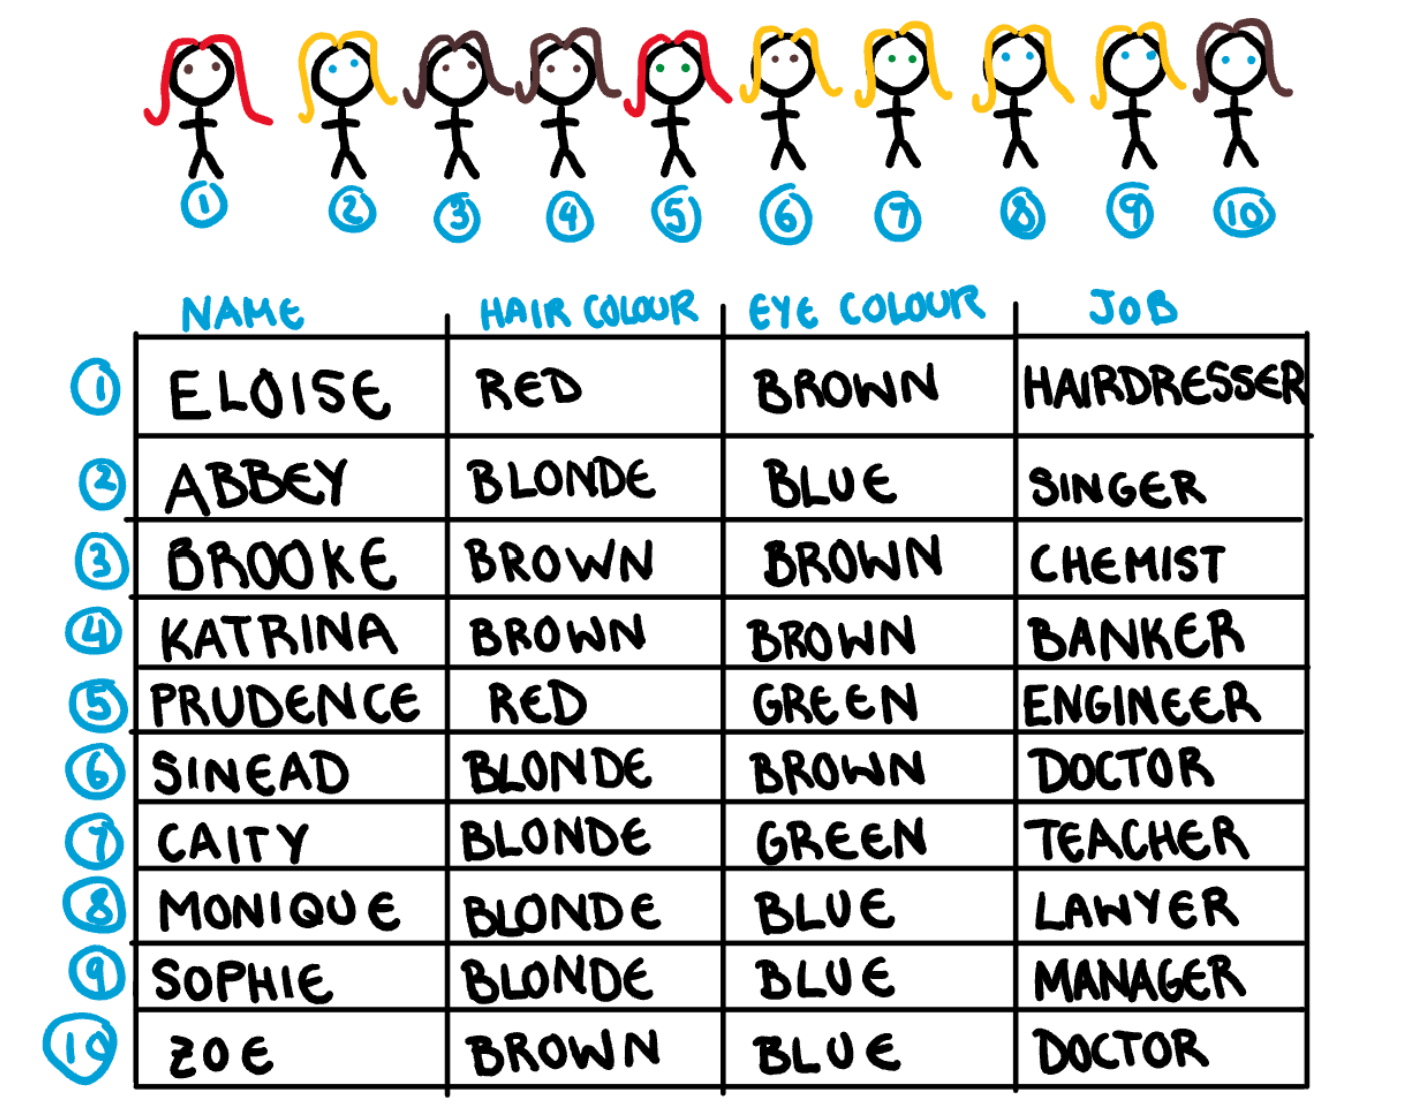 1 2 3 4 5 6 7 8 9 10
NAME HAIR COLOUR EYE COLOUR JOB
1 ELOISE RED BROWN HAIRDRESSER
2 ABBEY BLONDE BLUE SINGER
3 BROOKE BROWN BROWN CHEMIST
4 KATRINA BROWN BROWN BANKER
5 PRUDENCE RED GREEN ENGINEER
6 SINEAD BLONDE BROWN DOCTOR
7 CAITY BLONDE GREEN TEACHER
8 MONIQUE BLONDE BLUE LAWYER
9 SOPHIE BLONDE BLUE MANAGER
10 ZOE BROWN BLUE DOCTOR